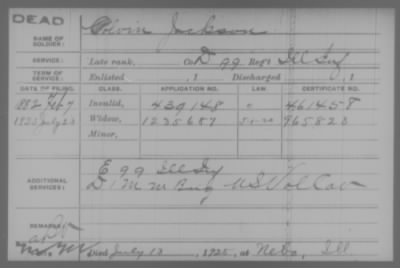 DEAD
NAME OF SOLDIER: Jackson
SERVICE: Late rank, Co. D, 99 Reg't Ill Inf
TERM OF SERVICE: Enlisted , 1 Discharged , 1
DATE OF FILING. CLASS. APPLICATION NO. LAW. CERTIFICATE NO.
1882 Feb 7 Invalid, 439148 461458
July 23 Widow, 1235687 965823
Minor,
ADDITIONAL SERVICES: E 99 Ill Inf
D 1 M M Brig U S Vol Cav
REMARKS:
Died July 13, 1925, at Nebo, Ill